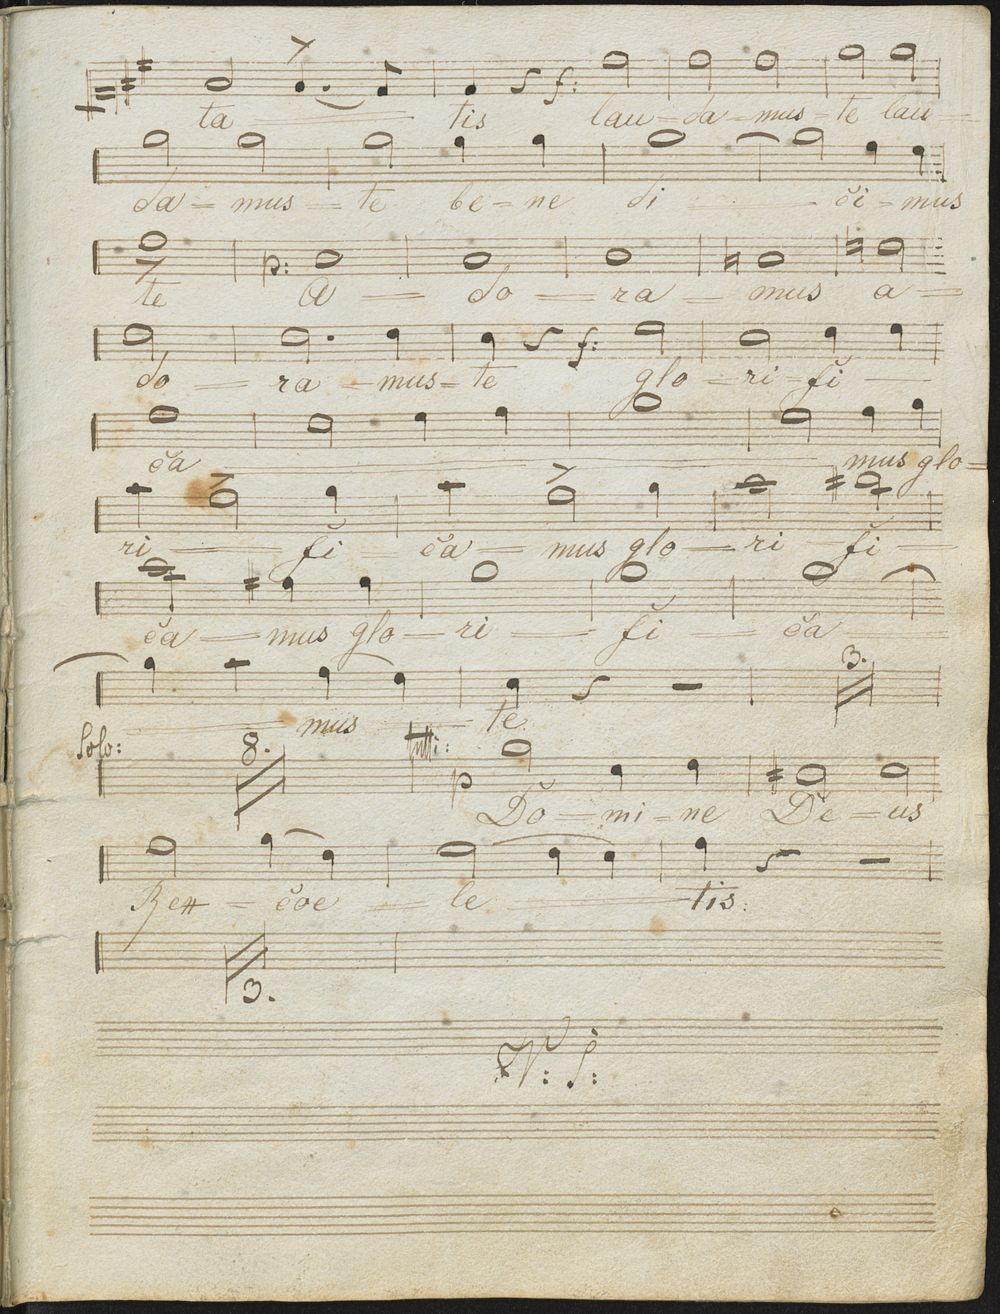 ta = tis lau - da - mus - te lau -
da - mus - te be - ne di - či - mus
te A - do - ra - mus a -
do - ra - mus - te glo - ri - fi -
ča mus glo -
ri - fi - ča - mus glo - ri - fi -
ča - mus glo - ri - fi - ča
3.
mus - te
Solo: 8. tutti: p
Do - mi - ne De - us
Rex - čoe - le - tis.
3.
V: S: